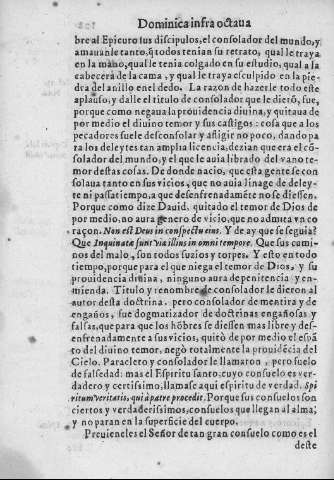 Dominica infra octaua
bre al Epicuro sus discipulos, el consolador del mundo, y
amauanle tanto, q̃ todos tenian su retrato, qual le traya
en la mano, qual le tenia colgado en su estudio, qual a la
cabecera de la cama, y qual le traya esculpido en la pie-
dra del anillo en el dedo. La razon de hazerle todo este
aplauso, y dalle el titulo de consolador que le dierõ, fue,
porque como negaua la prouidencia diuina, y quitaua de
por medio el diuino temor y sus castigos: cosa que a los
pecadores suele desconsolar y afligir no poco, dando pa
ra los deleytes tan amplia licencia, dezian que era el cõ-
solador del mundo, y el que le auia librado del vano te-
mor destas cosas. De donde nacio, que esta gente se con
solaua tanto en sus vicios, que no auia linage de deley-
te ni passatiempo, a que desenfrenadamẽte no se diessen.
Porque como dize Dauid. quitado el temor de Dios de
por medio, no aura genero de vicio, que no admita vn co
raçon. Non est Deus in conspectu eius. Y de ay que se seguia?
Que Inquinatæ sunt viæ illius in omni tempore. Que sus cami-
nos del malo, son todos suzios y torpes. Y esto en todo
tiempo, porque para el que niega el temor de Dios, y su
prouidencia diuina, ninguno aura de penitencia y en-
mienda. Titulo y renombre de consolador le dieron al
autor desta doctrina. pero consolador de mentira y de
engaños, fue dogmatizador de doctrinas engañosas y
falsas, que para que los hõbres se diessen mas libre y des-
enfrenadamente a sus vicios, quitò de por medio el espã
to del diuino temor. negò totalmente la prouidẽcia del
Cielo. Paracleto y consolador le llamaron, pero suelo
de falsedad: mas el Espiritu santo, cuyo consuelo es ver-
dadero y certissimo, llamase aqui espiritu de verdad. Spi
ritum veritatis, qui à patre procedit. Porque sus consuelos son
ciertos y verdaderissimos, consuelos que llegan al alma,
y no paran en la superficie del cuerpo.
Preuieneles el Señor de tan gran consuelo como es el
deste